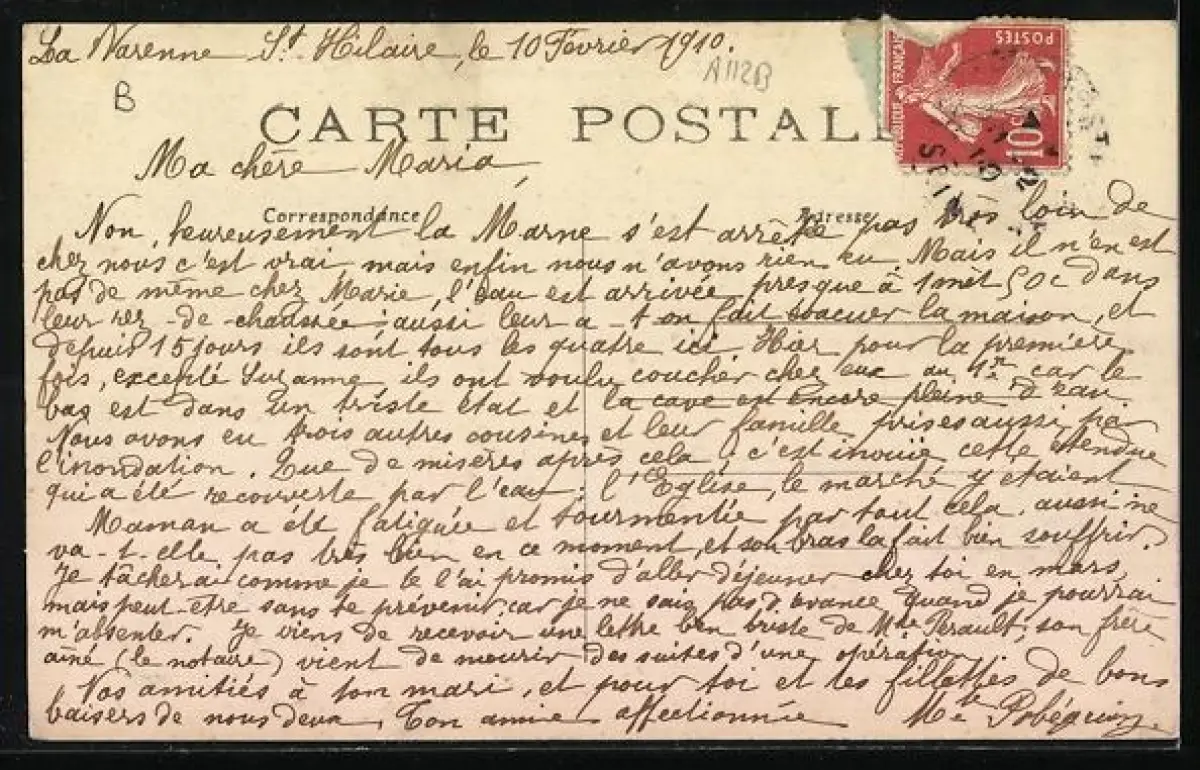 La Varenne St Hilaire, le 10 Février 1910.
A112B
B
CARTE POSTALE
RÉPUBLIQUE FRANÇAISE
POSTES
10c
Ma chère Maria,
Correspondance
Adresse
Non, heureusement la Marne s'est arrêtée pas très loin de
chez nous c'est vrai mais enfin nous n'avons rien eu. Mais il n'en est
pas de même chez Marie, l'eau est arrivée presque à 1 mèt 50c dans
leur rez-de-chaussée; aussi leur a-t on fait évacuer la maison, et
depuis 15 jours ils sont tous les quatre ici. Hier pour la première
fois, excepté Suzanne, ils ont voulu coucher chez eux au 1er car le
bas est dans un triste état et la cave est encore pleine d'eau.
Nous avons eu trois autres cousines et leur famille prises aussi par
l'inondation. Que de misères après cela, c'est inouïe cette étendue
qui a été recouverte par l'eau; l'Eglise, le marché y étaient
Maman a été fatiguée et tourmentée par tout cela, aussi ne
va-t-elle pas très bien en ce moment, et son bras la fait bien souffrir.
Je tâcherai comme je te l'ai promis d'aller déjeuner chez toi en mars,
mais peut-être sans te prévenir, car je ne sais pas d'avance quand je pourrai
m'absenter. Je viens de recevoir une lettre bien triste de Mlle Perault, son frère
ainé (le notaire) vient de mourir des suites d'une opération
Nos amitiés à ton mari, et pour toi et tes fillettes de bons
baisers de nous deux, Ton amie affectionnée